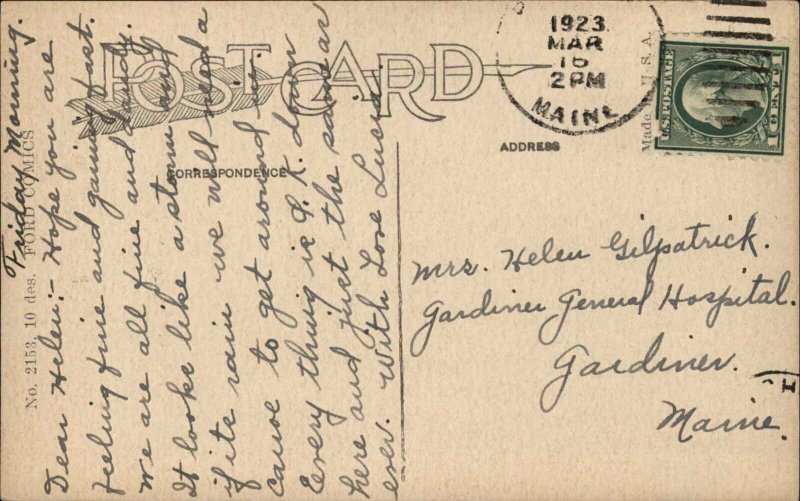 POST CARD
CORRESPONDENCE
ADDRESS
1923
MAR
15
2 PM
MAINE
Made in U.S.A.
U.S. POSTAGE
1 CENT 1
No. 2153, 10 des. FORD COMICS
Friday Morning.
Dear Helen:- Hope you are
feeling fine and gaining fast.
We are all fine and dandy.
It looks like a storm and
if its rain we will need a
canoe to get around in.
Every thing is O. K. down
here and just the same as
ever. With Love Lucia.
Mrs. Helen Gilpatrick.
Gardiner General Hospital.
Gardiner.
Maine.